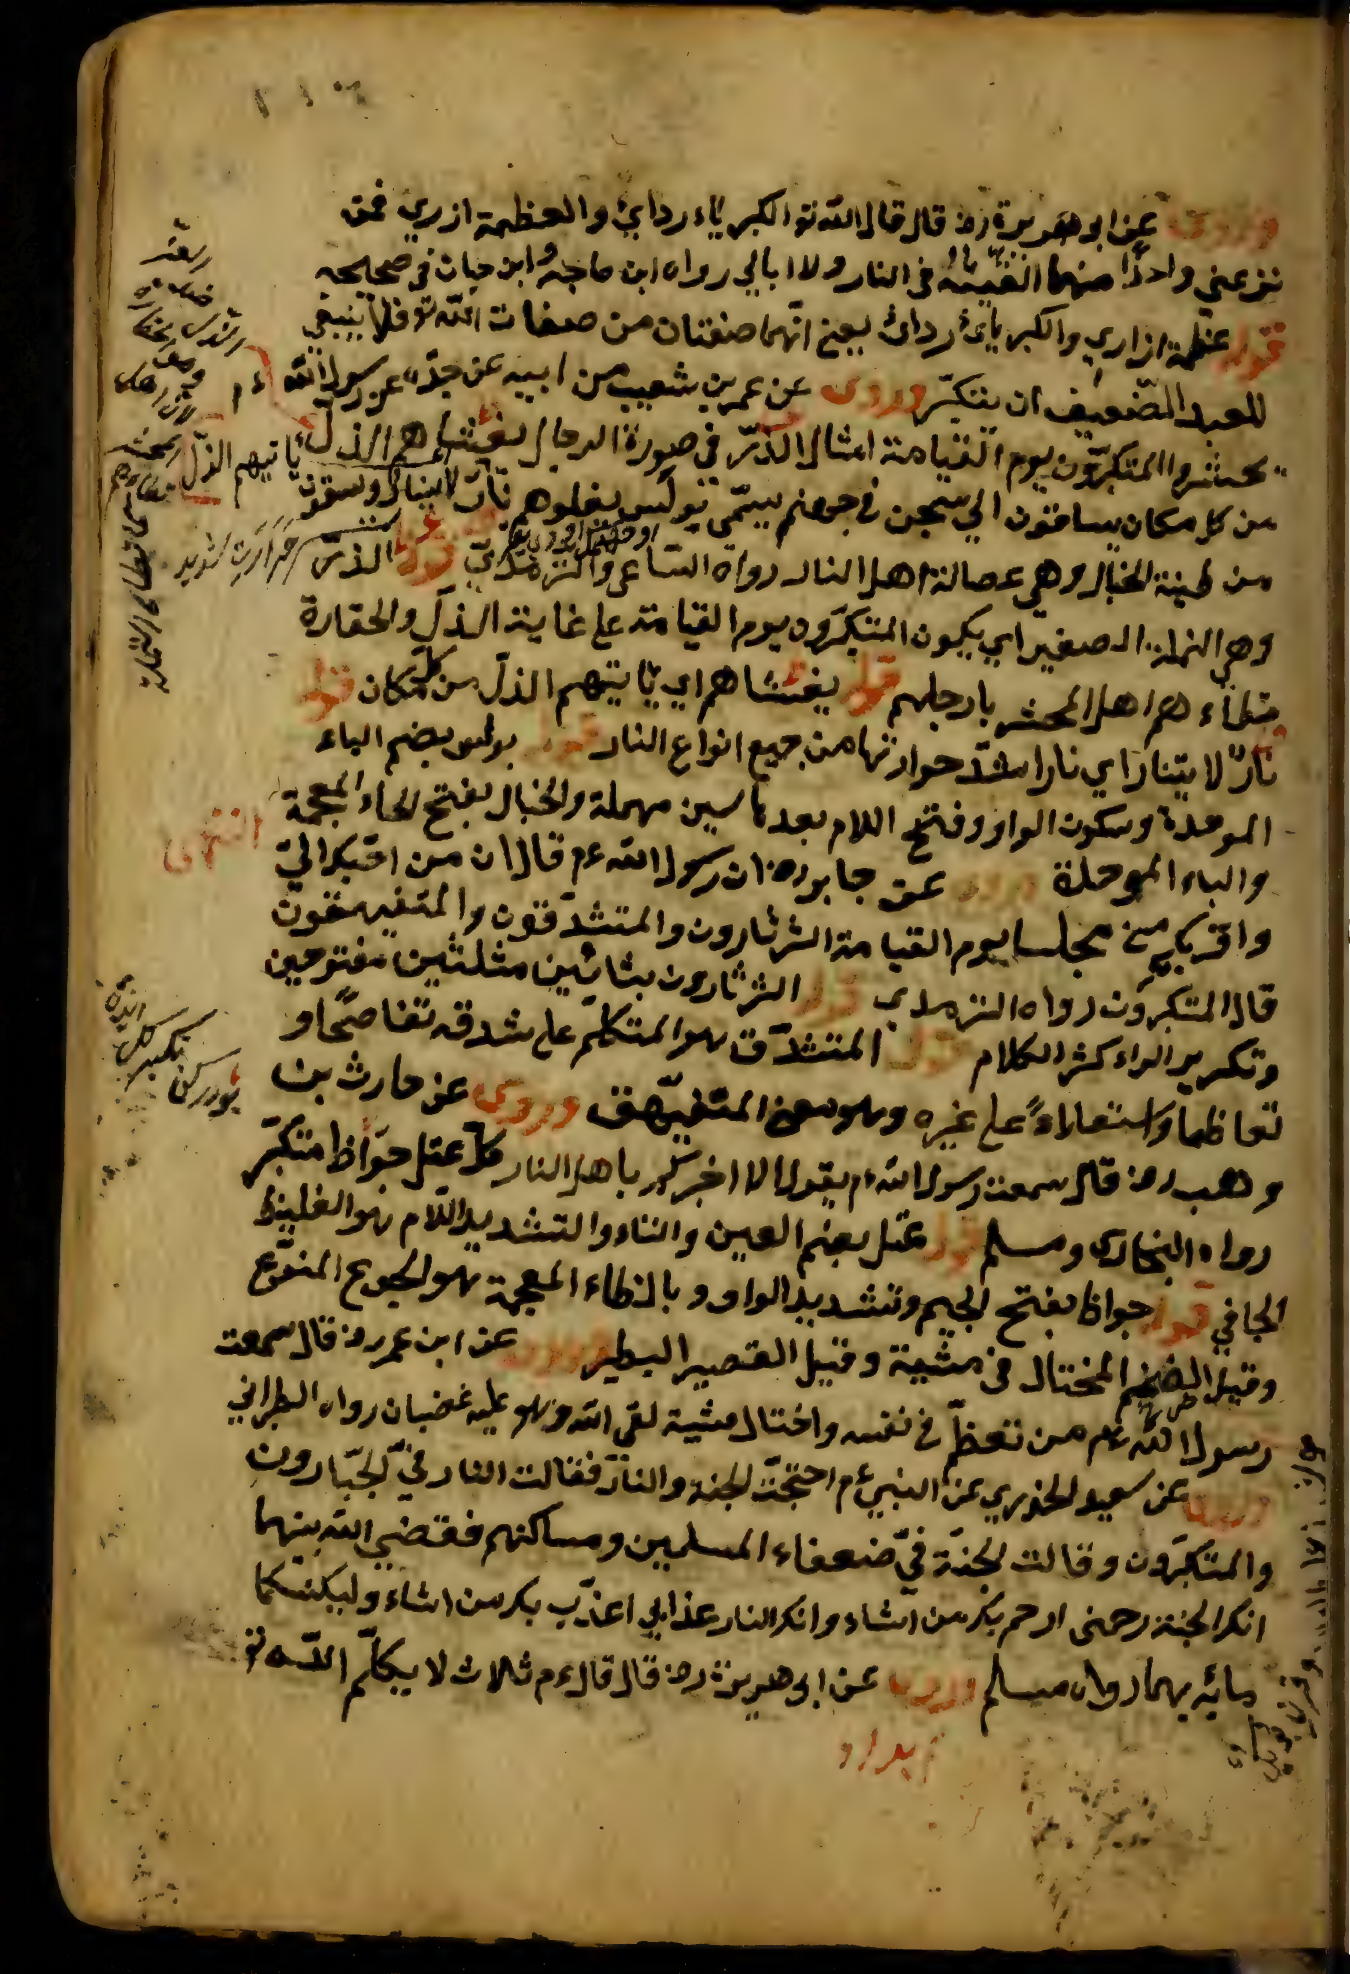 وروى عن ابو هريرة رض قال قال الله تع الكبرياء ردائي والعظمة ازري فمن
نزعني واحدًا منهما القيته في النار ولا ابالي رواه ابن ماجه وابن حبان في صحيحه
قوله عظمة ازاري والكبرياء ردائ يعني انّهما صفتان من صفات الله تع فلا ينبغي
للعبد الضعيف ان يتكبّر وروى عن عمر بن شعيب من ابيه عن جدّه عن رسول الله ءم
يحشر المتكبّرون يوم القيامة امثال الذّرّ في صورة الرجال يغشاهم الذلّ ياتيهم الذلّ
من كل مكان يساقون الى سجن في جهنم يسمّى بولس يعلوهم نارٌ لانيار ويسقون
من طينة الخبال وهي عصالة اهل النار رواه النساعى والترمذي قوله الذرّ
وهي النملة الصغير اي يكون المتكبّرون يوم القيامة على غاية الذلّ والحقارة
يطاءهم اهل المحشر بارجلهم قوله يغشاهم اي ياتيهم الذلّ من كلّ مكان قوله
نارٌ لا يتنار اي نارا اشدّ حوارتها من جميع انواع النار قوله بولس بضم الباء
الموحدة وسكون الواو وفتح اللام بعدها سين مهملة والخبال بفتح الخاء المعجمة
والباء الموحدة انتهى وروى عن جابر رض ان رسول الله ءم قال ان من احبكم اليّ
واقربكم منّي مجلسا يوم القيامة الثرثارون والمتشدّقون والمتفيهقون
قال المتكبّرون رواه الترمذي قوله الثرثارون بثائين مثلثين مفتوحين
وتكرير الراء كثر الكلام قوله المتشدّق هو المتكلّم على شدقه تفاصحًا و
تعاظما واستعلاءً على غيره وهو معنى المتفيهق وروى عن حارث بن
وهب رض قال سمعت رسول الله ءم يقول الا اخبركم باهل النار كلّ عتل جوّاظ متكبّر
رواه البخاري ومسلم قوله عتل بضم العين والتاء والتشديد اللام هو الغليظ
الجافي قوله جواظ بفتح الجيم وتشديد الواو وبالظاء المعجمة هو الجموع المنوع
وقيل الضخم المختال في مشية وقيل القصير البطين وروى عن ابن عمر رض قال سمعت
رسول الله ءم من تعظّم في نفسه واختال مشية لقى الله وهو عليه غضبان رواه الطبراني
وروى عن سعيد الخدري عن النبي ءم احتجّت الجنة والنار فقالت النار فيّ الجبّارون
والمتكبّرون وقالت الجنّة فيّ ضعفاء المسلمين ومساكنهم فقضى الله بينهما
انك الجنة رحمتي ارحم بك من اشاء وانك النار عذابي اعذّب بك من اشاء ولكليكما
ملئه بهما رواه مسلم وروى عن ابو هريرة رض قال قال ءم ثلاث لا يكلّم الله تع